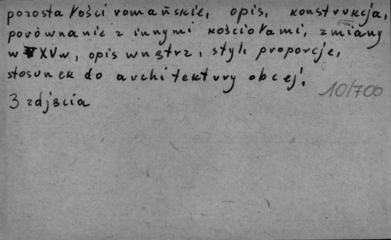 pozostałości romańskie, opis, konstrukcja,
porównanie z innymi kościołami, zmiany
w XVw, opis wnętrz, styl, proporcje,
stosunek do architektury obcej.
10/700
3 zdjęcia